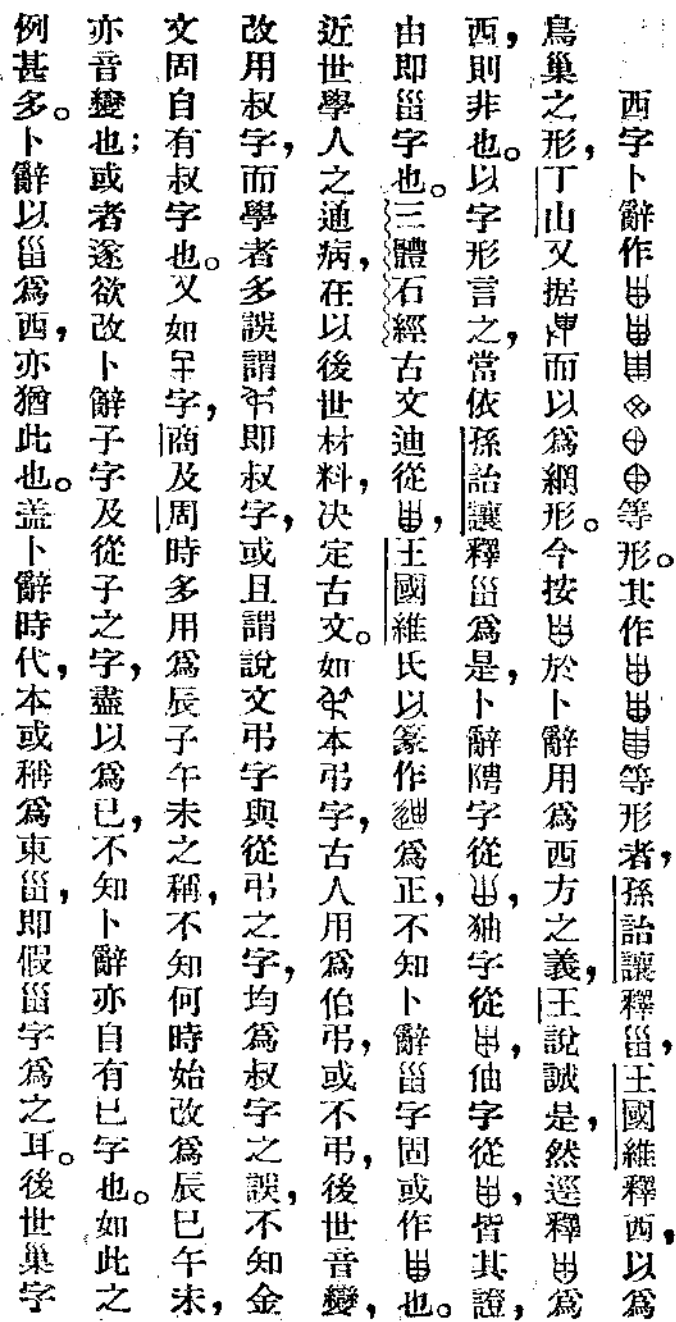 西字卜辭作等形。其作等形者,孫詒讓釋甾,王國維釋西,以爲
鳥巢之形,丁山又据而以爲網形。今按於卜辭用爲西方之義,王說誠是,然逕釋爲
西,則非也。以字形言之,當依孫詒讓釋甾爲是,卜辭聘字從,㹨字從,伷字從,皆其證,
由即甾字也。三體石經古文迪從,王國維氏以篆作爲正,不知卜辭甾字固或作也。
近世學人之通病,在以後世材料,决定古文。如本弔字,古人用爲伯弔,或不弔,後世音變,
改用叔字,而學者多誤謂即叔字,或且謂說文弔字與從弔之字,均爲叔字之誤,不知金
文固自有叔字也。又如字,商及周時多用爲辰子午未之稱,不知何時始改爲辰巳午未,
亦音變也;或者遂欲改卜辭子字及從子之字,盡以爲巳,不知卜辭亦自有巳字也。如此之
例甚多。卜辭以甾爲西,亦猶此也。蓋卜辭時代,本或稱爲東甾,即假甾字爲之耳。後世巢字